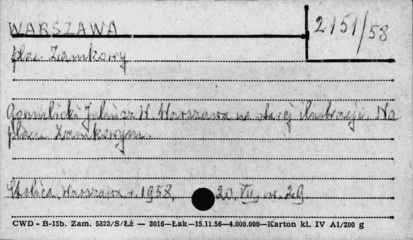 WARSZAWA
2151/58
plac Zamkowy
Gomulicki Juliusz W. Warszawa na starej ilustracji. Na
placu Zamkowym.
Stolica, Warszawa r. 1958, 20.VII, nr. 29
CWD - B-15b. Zam. 5823/S/Łż — 3016—Łak—15.11.56—4.000.000—Karton kl. IV A1/200 g